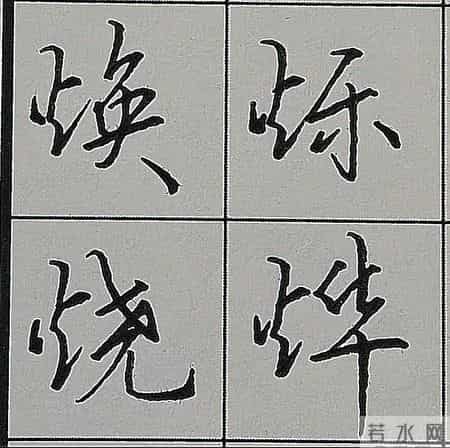 焕烁
烧烨
若水网